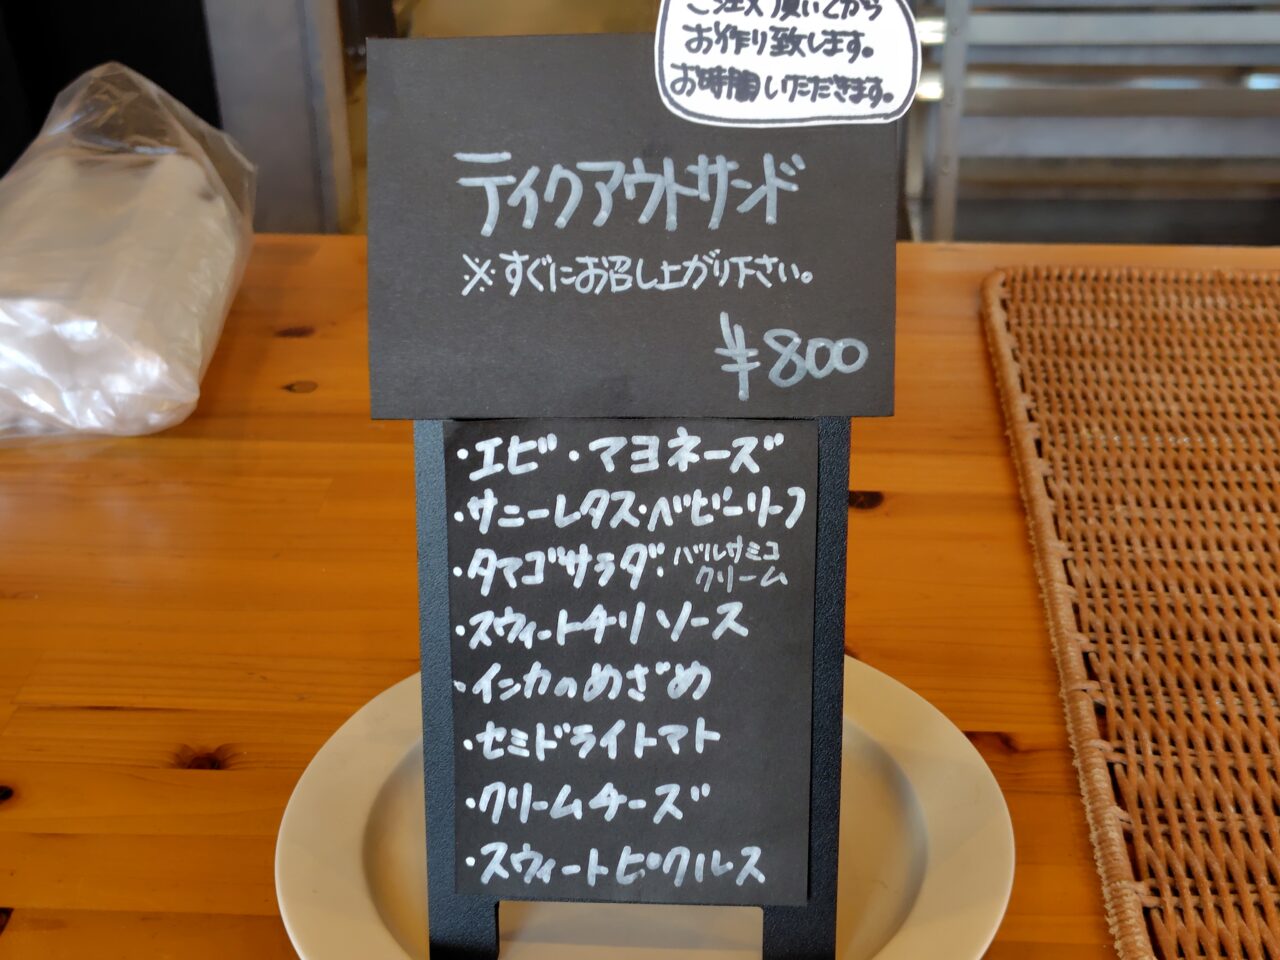 ご注文頂いてから
お作り致します。
お時間いただきます。
テイクアウトサンド
※すぐにお召し上がり下さい。
¥800
・エビ・マヨネーズ
・サニーレタス・ベビーリーフ
・タマゴサラダ・バルサミコ
クリーム
・スウィートチリソース
・インカのめざめ
・セミドライトマト
・クリームチーズ
・スウィートピクルス